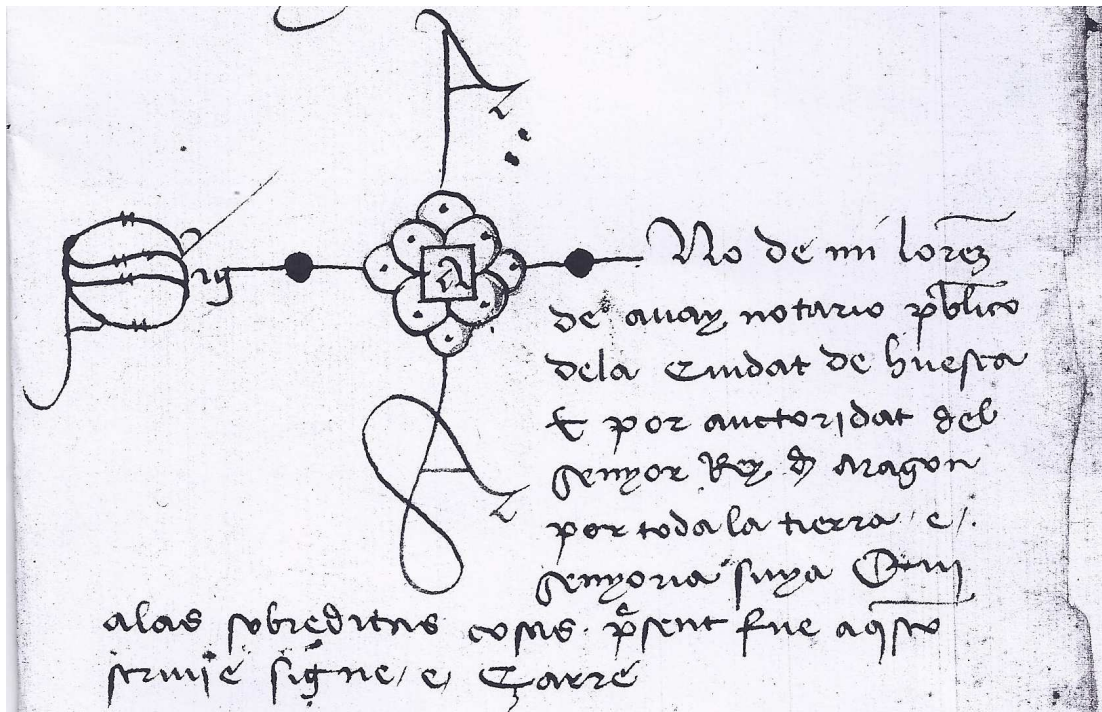 Sig No de mi lorenz
de auay notario publico
dela Ciudat de huesca
E por auctoridat del
senyor Rey de aragon
por toda la tierra e
senyoria suya Qui
a las sobreditas cosas present fue aquesto
scriuie signe e Çarre